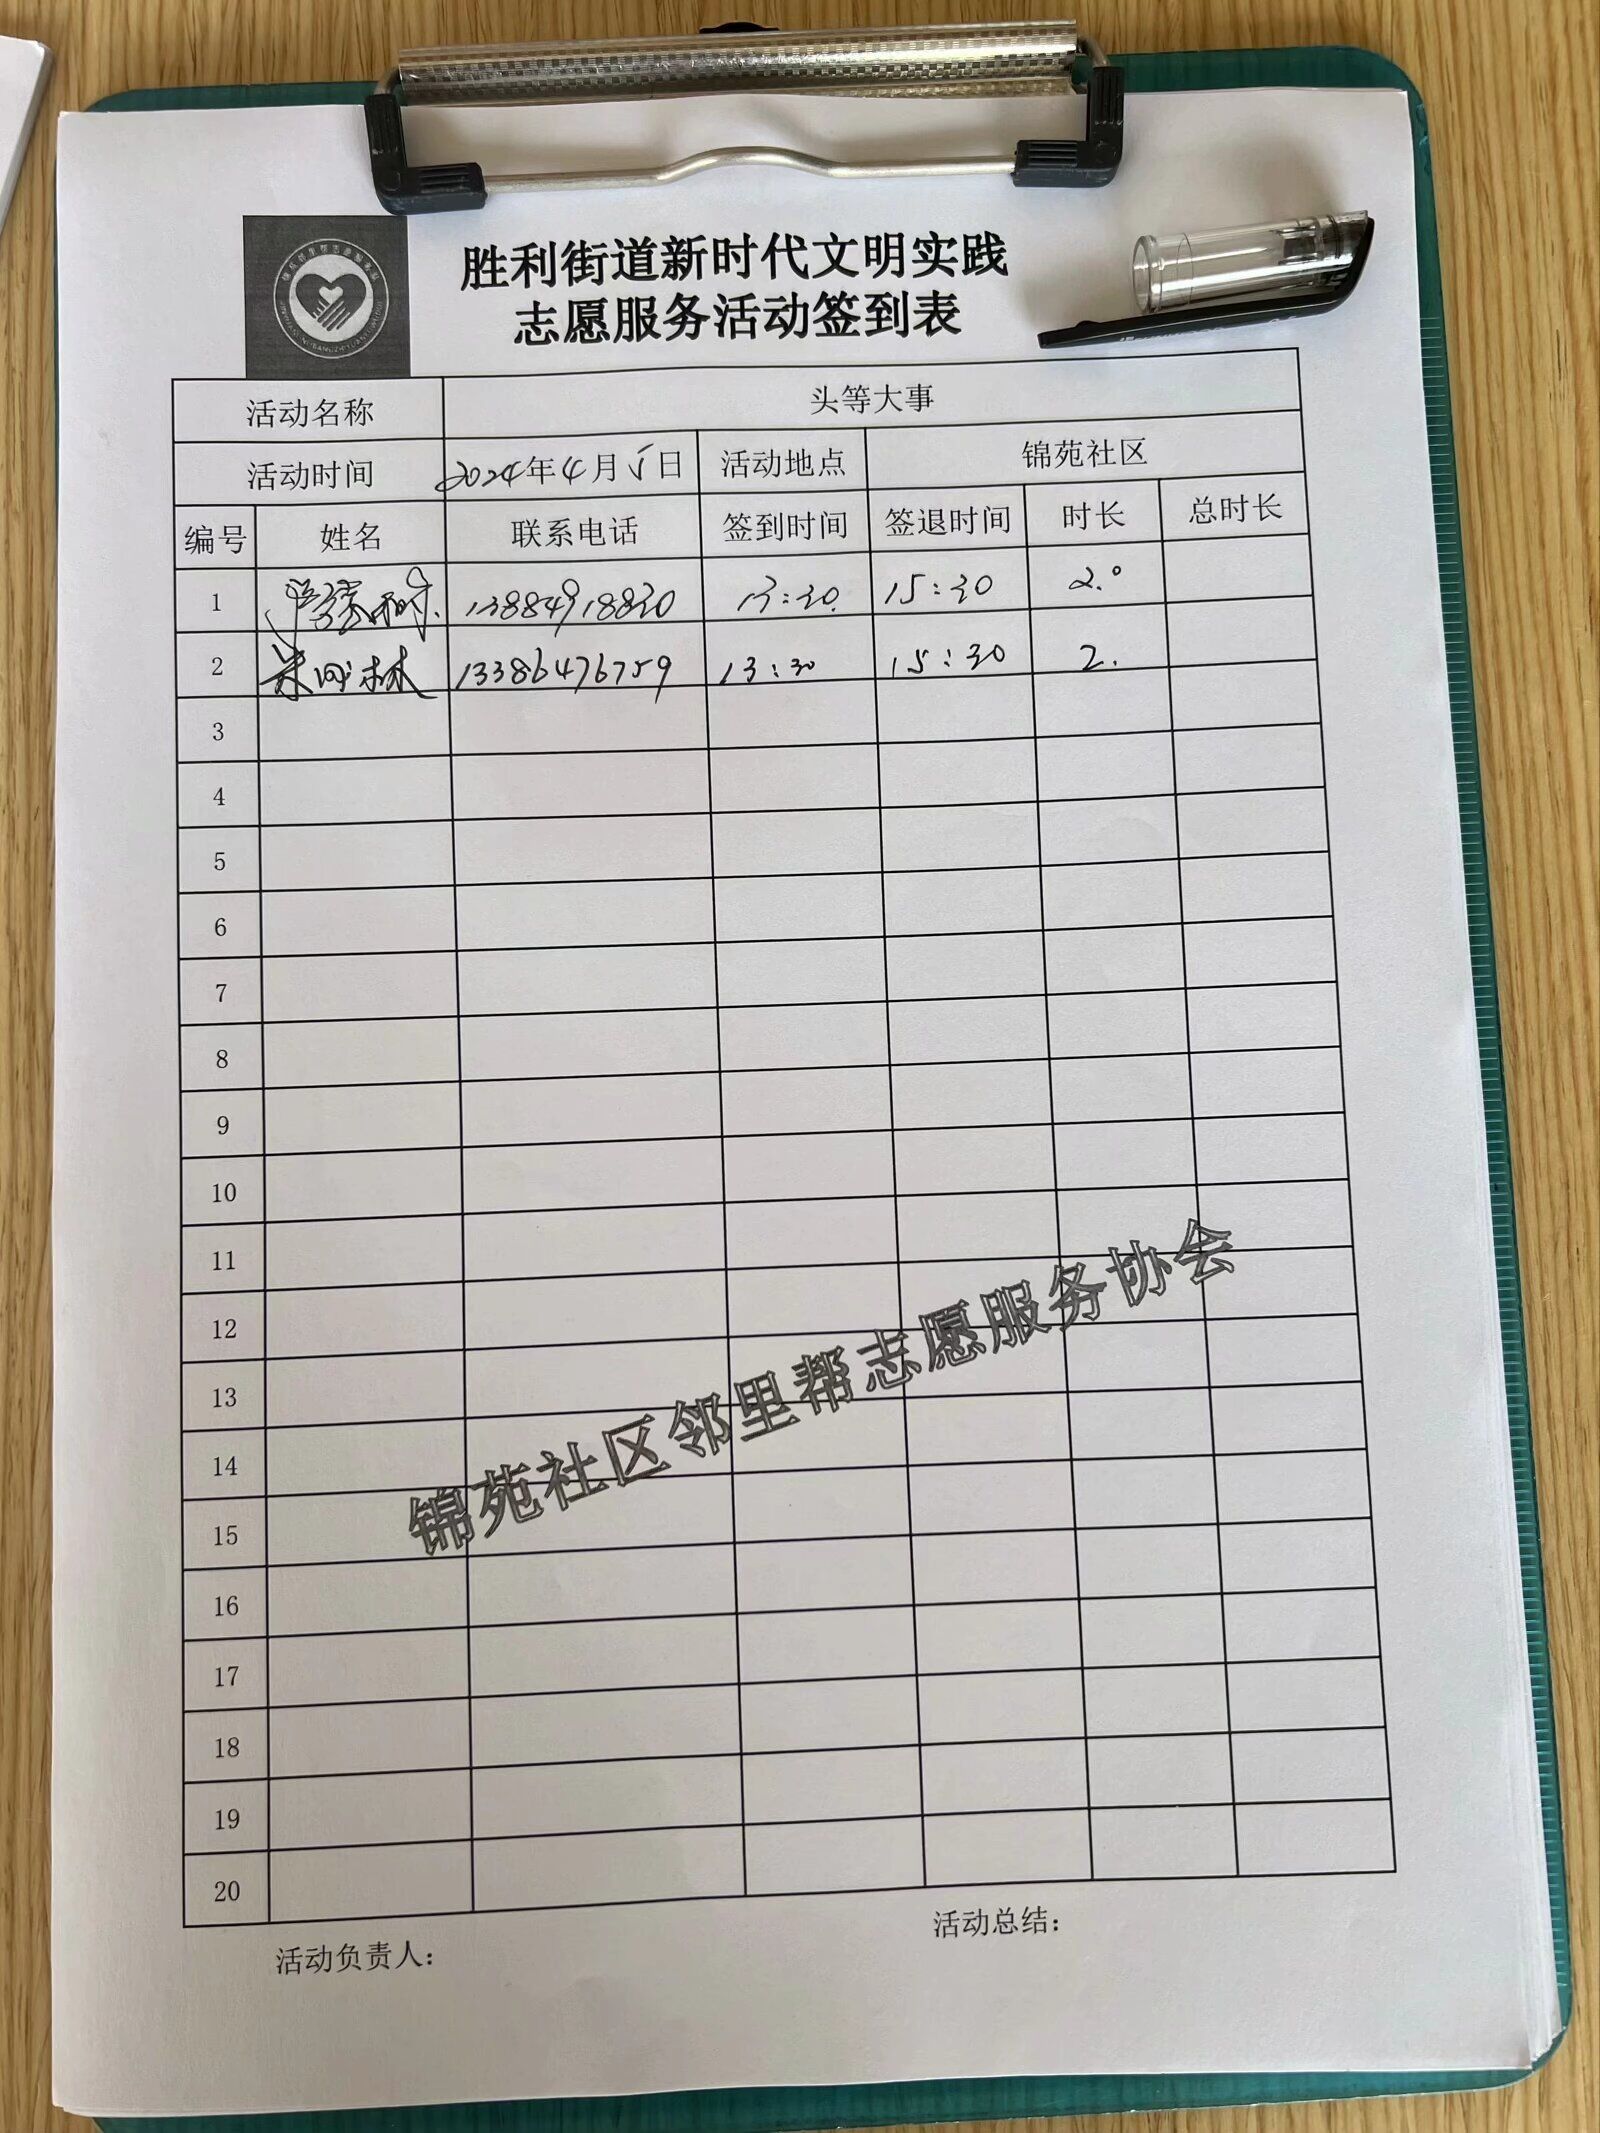 胜利街道新时代文明实践
志愿服务活动签到表
活动名称 头等大事
活动时间 2024年4月5日 活动地点 锦苑社区
编号 姓名 联系电话 签到时间 签退时间 时长 总时长
1 13884918830 13:30 15:30 2.0
2 林 13386476759 13:30 15:30 2.
3
4
5
6
7
8
9
10
11
12
13
14
15
16
17
18
19
20
锦苑社区邻里帮志愿服务协会
活动负责人: 活动总结: